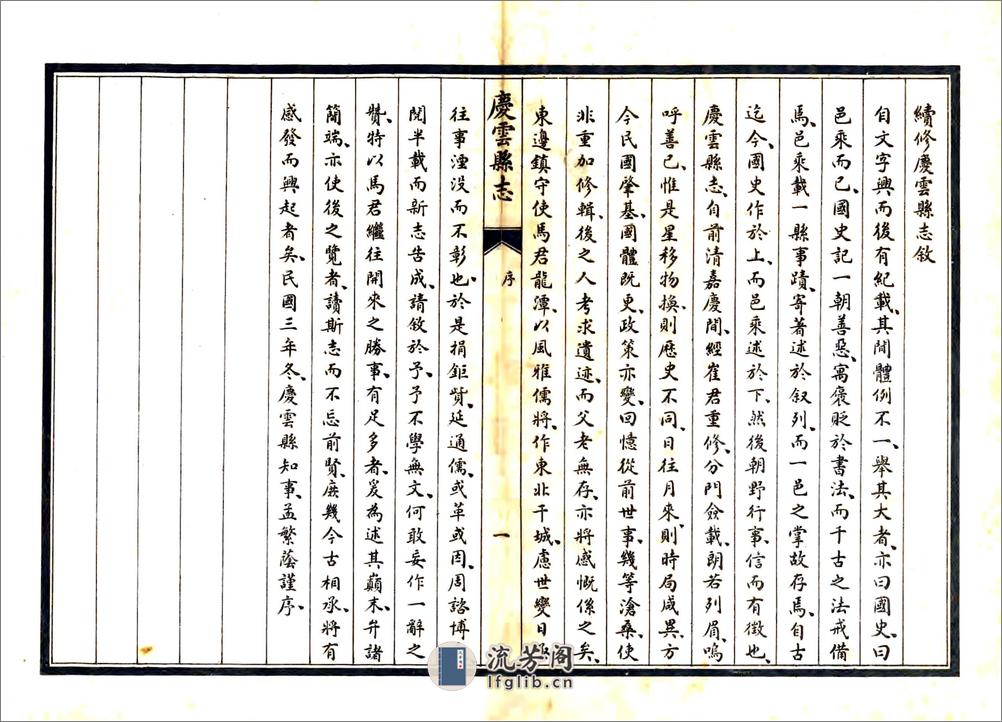 續修慶雲縣志敘
自文字興而後有紀載、其間體例不一、舉其大者、亦曰國史、曰
邑乘而已、國史記一朝善惡、寓褒貶於書法、而千古之法戒備
焉、邑乘載一縣事蹟、寄著述於叙列、而一邑之掌故存焉、自古
迄今、國史作於上、而邑乘述於下、然後朝野行事、信而有徵也、
慶雲縣志、自前清嘉慶間、經崔君重修、分門僉載、朗若列眉、嗚
呼善已、惟是星移物換、則歷史不同、日往月來、則時局咸異、方
今民國肇基、國體既更、政策亦變、回憶從前世事、幾等滄桑、使
非重加修輯、後之人考求遺迹、而父老無存、亦將感慨係之矣、
東邊鎮守使馬君龍潭、以風雅儒將、作東北干城、慮世變日
慶雲縣志
序
一
往事湮沒而不彰也、於是捐鉅貲、延通儒、或革或因、周諮博
閱半載而新志告成、請敘於予、予不學無文、何敢妄作一辭之
贊、特以馬君繼往開來之勝事、有足多者、爰為述其巔末、弁諸
簡端、亦使後之覽者、讀斯志而不忘前賢、庶幾今古相承、將有
感發而興起者矣、民國三年冬、慶雲縣知事、孟繁蔭謹序、
流芳阁
lfglib.cn